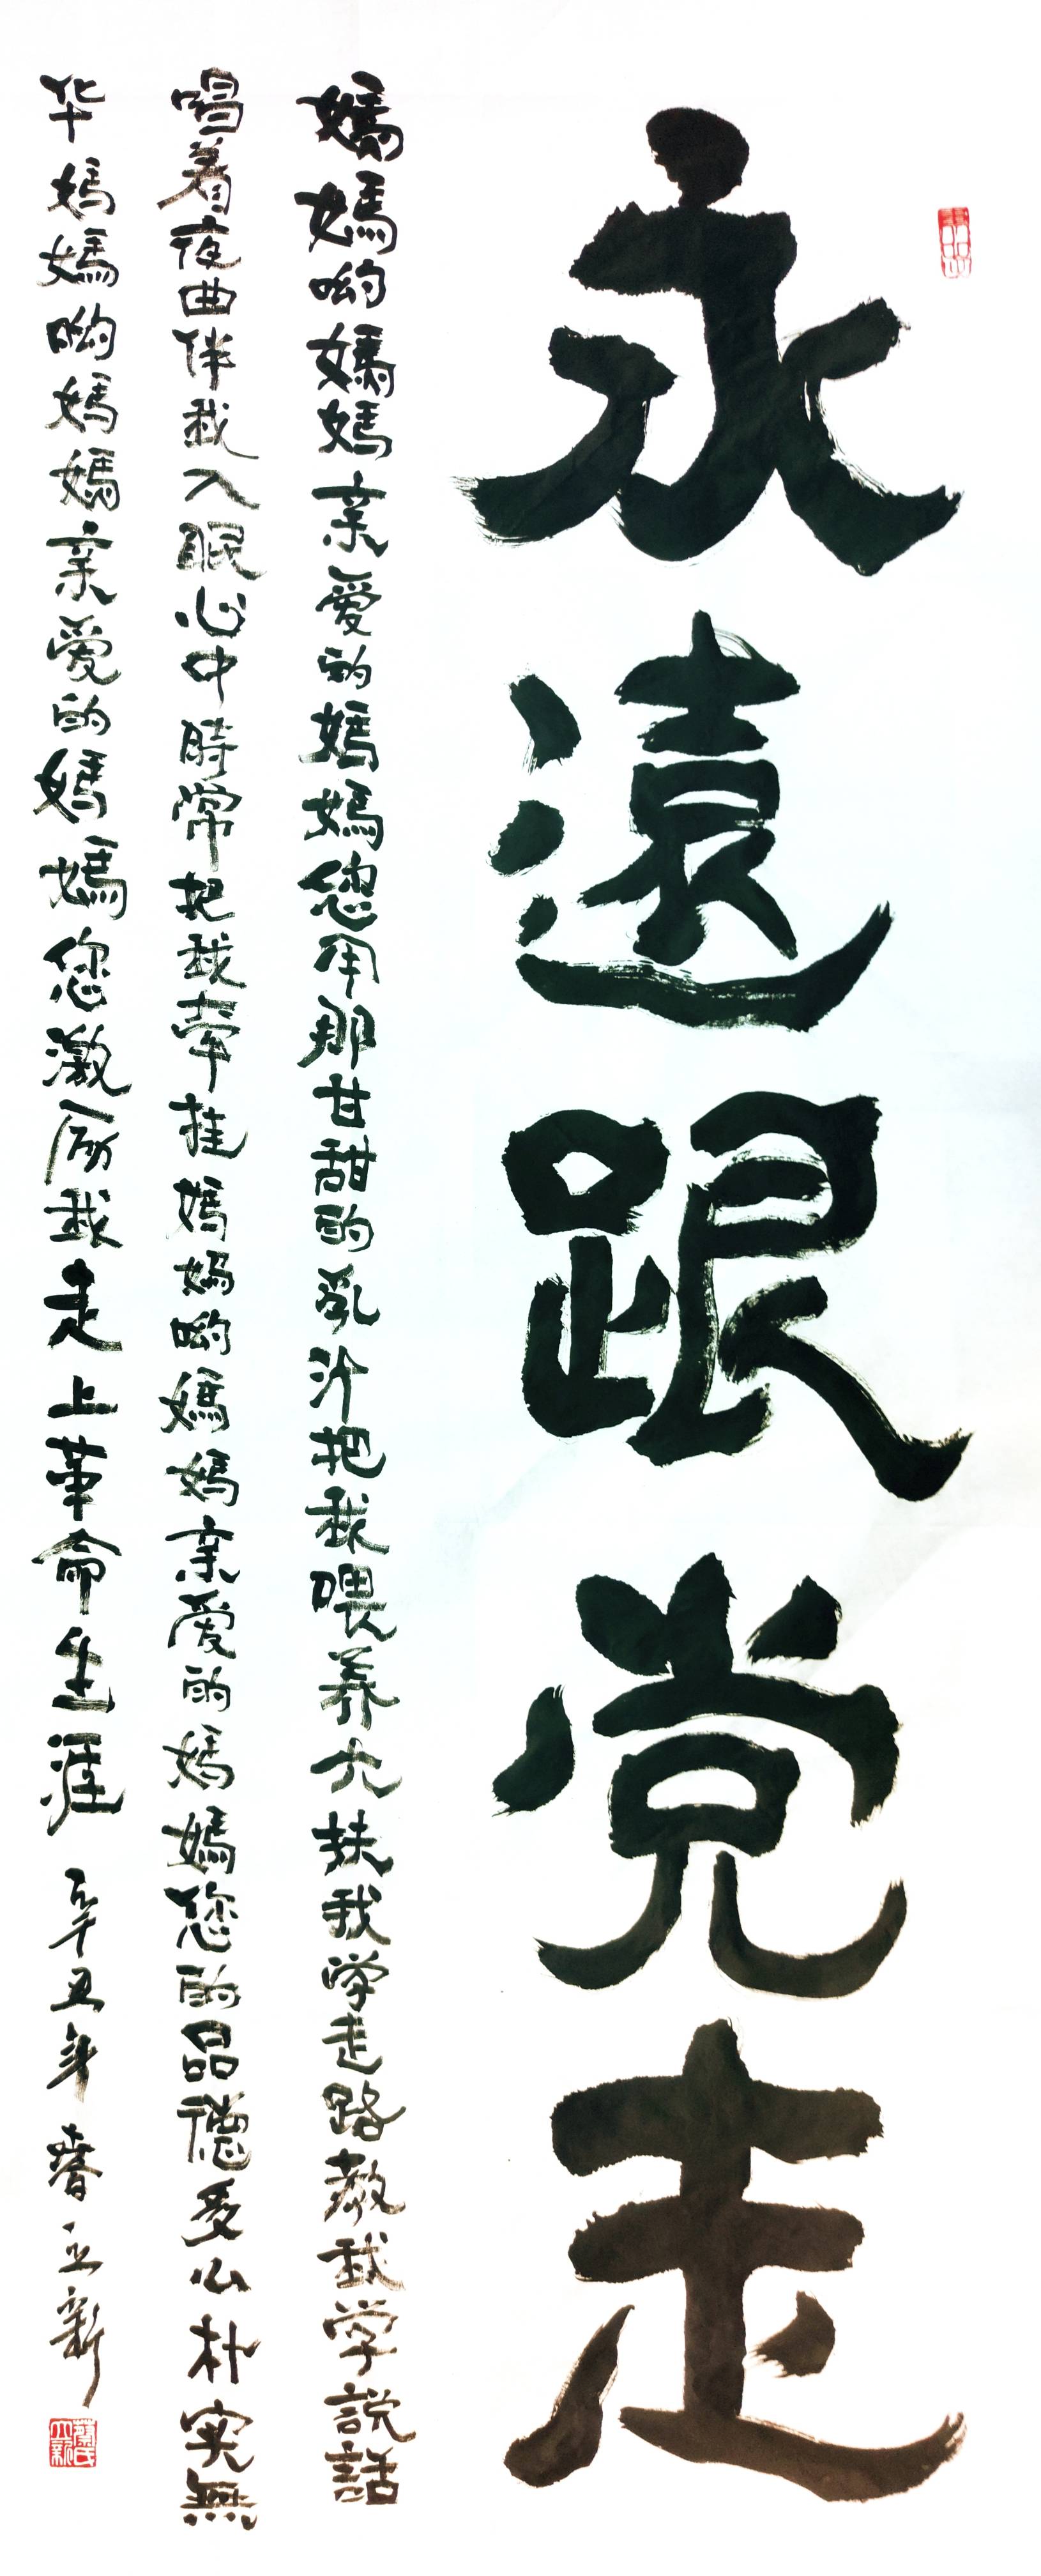 永遠跟党走
媽媽喲媽媽亲愛的媽媽媽您用那甘甜的乳汁把我喂养大扶我学走路教我学説話
唱着夜曲伴我入眠心中時常把我牵挂媽媽喲媽媽亲爱的媽媽您的品德多么朴实無
华媽媽喲媽媽亲爱的媽媽您激励我走上革命生涯 辛丑年春立新